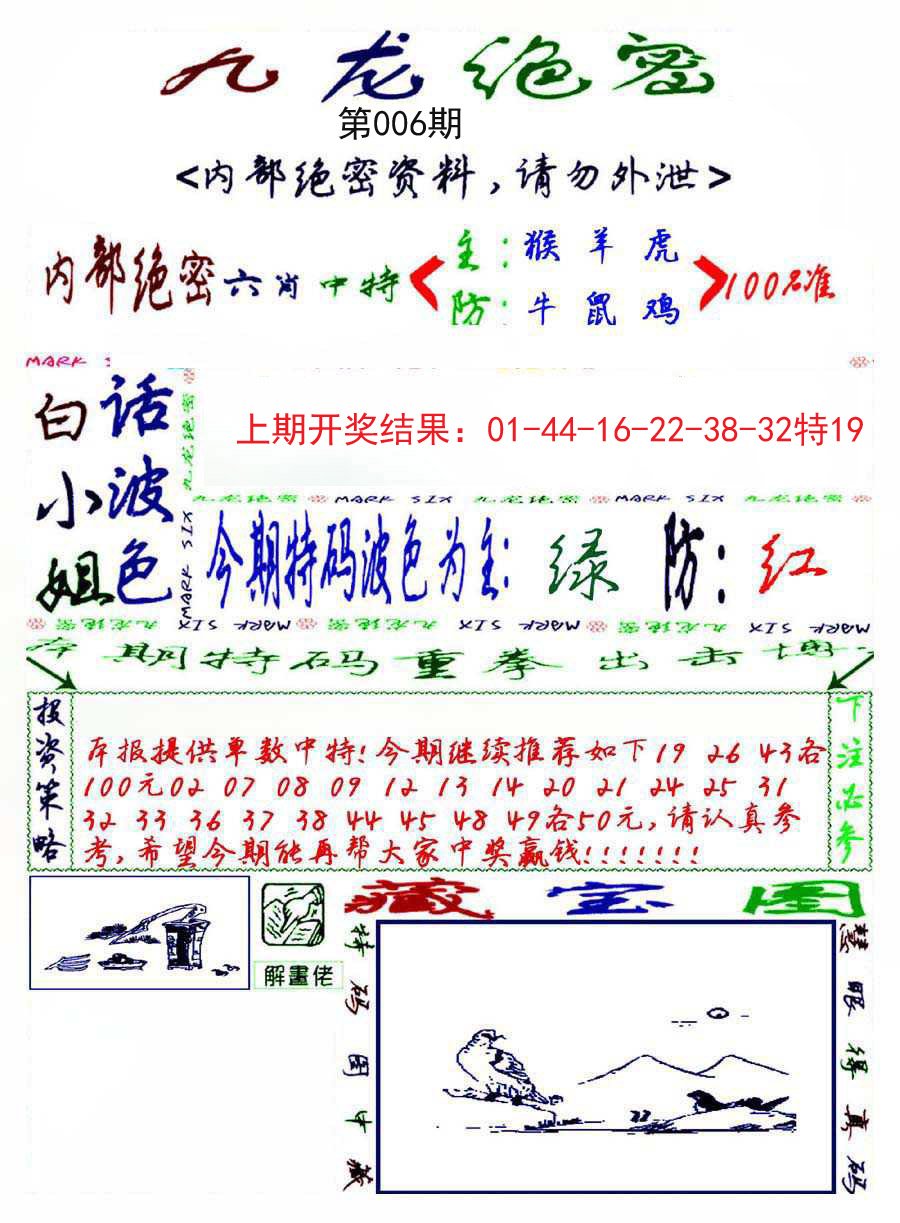 九龙绝密
第006期
<内部绝密资料,请勿外泄>
内部绝密六肖中特
主:猴 羊 虎
防:牛 鼠 鸡
100%准
MARK :
白话
小波
姐色
九龙绝密
MARK SIX
上期开奖结果：01-44-16-22-38-32特19
九龙绝密 MARK SIX 九龙绝密 MARK SIX 九龙绝密
今期特码波色为主:绿 防:红
九龙绝密 MARK SIX 九龙绝密 MARK SIX 九龙绝密 MARK SIX
期特码重拳出击
投资策略
本报提供单数中特!今期继续推荐如下19 26 43各
100元02 07 08 09 12 13 14 20 21 24 25 31
32 33 36 37 38 44 45 48 49各50元,请认真参
考,希望今期能再帮大家中奖赢钱!!!!!!!
下注必参
解畫佬
藏宝图
特码图中藏
慧眼得真码